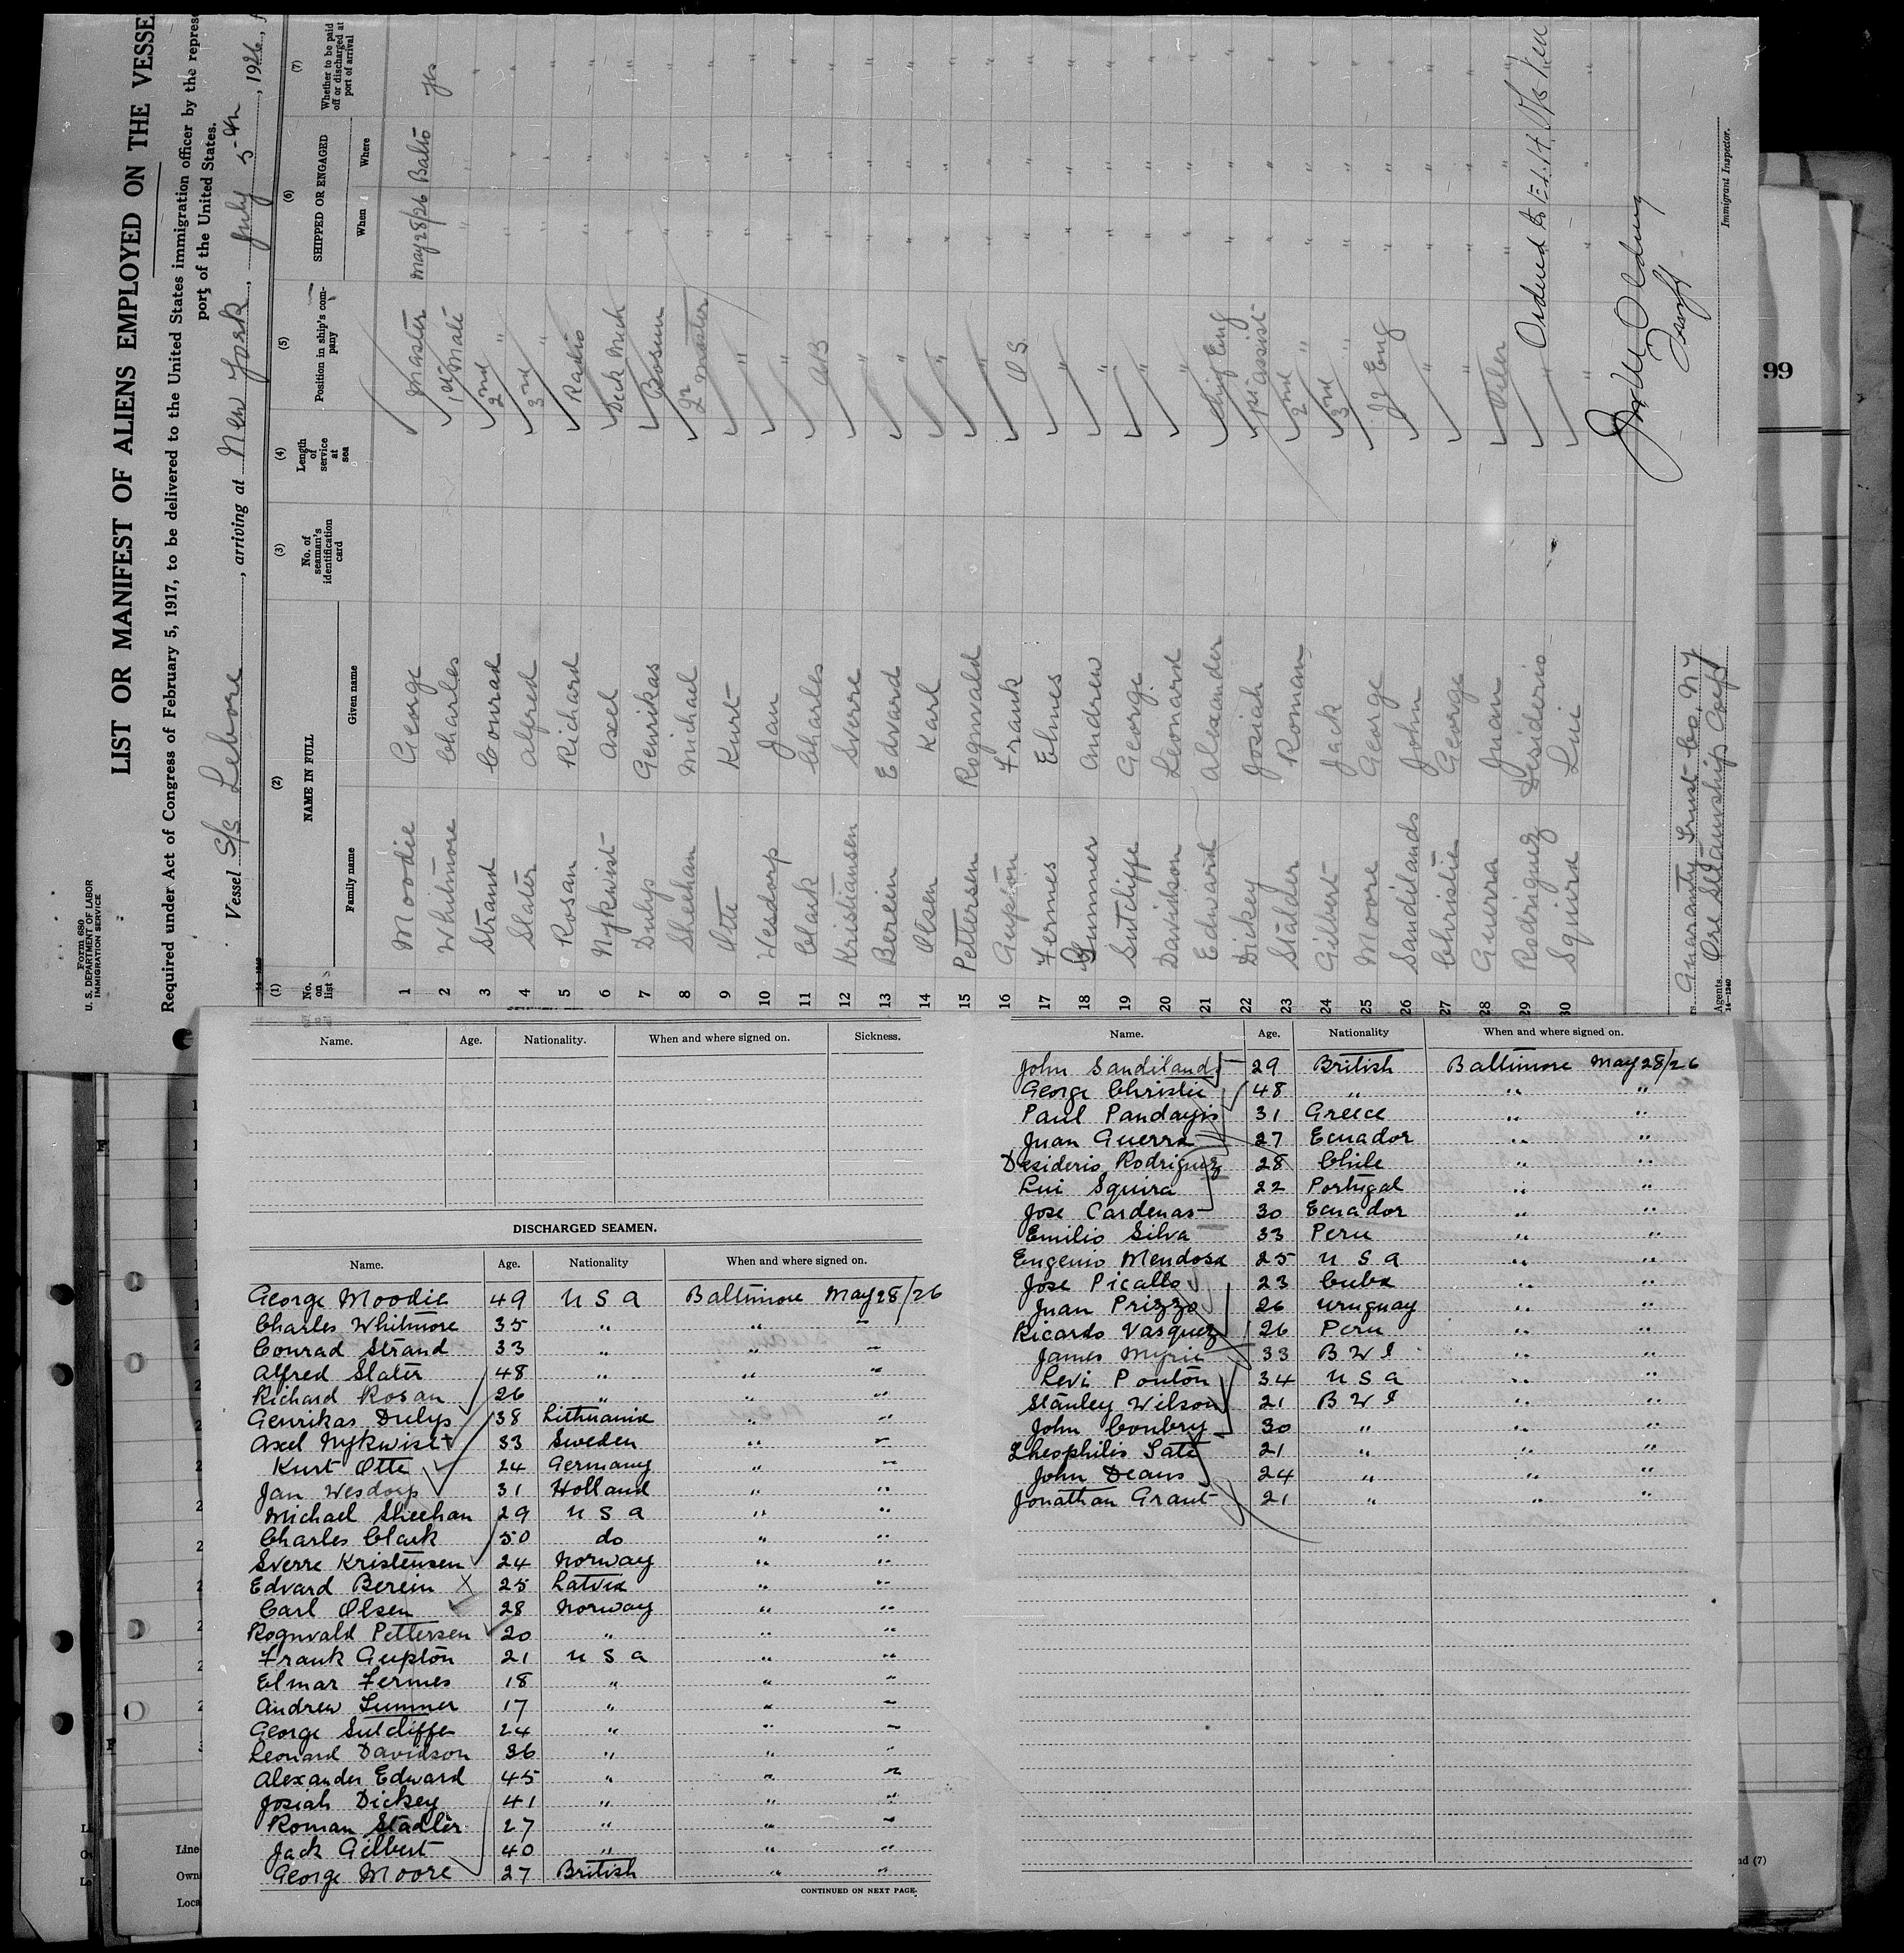 Form 680
U. S. DEPARTMENT OF LABOR
IMMIGRATION SERVICE
LIST OR MANIFEST OF ALIENS EMPLOYED ON THE VESSE
Required under Act of Congress of February 5, 1917, to be delivered to the United States immigration officer by the represe
port of the United States.
Vessel S/S Lebore, arriving at New York, July 5th, 1926,
(1) (2) (3) (4) (5) (6) (7)
No. on list NAME IN FULL No. of seaman's identification card Length of service at sea Position in ship's company SHIPPED OR ENGAGED Whether to be paid off or discharged at port of arrival
Family name Given name When Where
1 Moodie George Master May 28/26 Balto Yes
2 Whitmore Charles 1st Mate " " "
3 Strand Conrad 2nd " " " "
4 Slater Alfred 3rd " " " "
5 Rosan Richard Radio " " "
6 Nykwist Axel Deck Mech " " "
7 Dulys Genrikas Bosun " " "
8 Sheehan Michael Qr master " " "
9 Otte Kurt " " " "
10 Wesdorp Jan " " " "
11 Clark Charles AB " " "
12 Kristiansen Sverre " " " "
13 Berein Edvard " " " "
14 Olsen Karl " " " "
15 Pettersen Rognvald " " " "
16 Gupton Frank OS " " "
17 Fermes Elmes " " " "
18 Gummer Andrew " " " "
19 Sutcliffe George " " " "
20 Davidson Leonard " " " "
21 Edward Alexander Chief Eng " " "
22 Dickey Josiah assist " " "
23 Stalder Roman 2nd " " " "
24 Gilbert Jack 3rd " " " "
25 Moore George Jr Eng " " "
26 Sandilands John " " " "
27 Christie George " " " "
28 Guerra Juan Oiler " " "
29 Rodriguez Desiderio " " " "
30 Squira Lui " " " "
Guaranty Trust Co, NY
Agents Ore Steamship Corp
14—1240
Immigrant Inspector.
99
Name. Age. Nationality. When and where signed on. Sickness.
DISCHARGED SEAMEN.
Name. Age. Nationality When and where signed on.
George Moodie 49 U S A Baltimore May 28/26
Charles Whitmore 35 " " "
Conrad Strand 33 " " "
Alfred Slater 48 " " "
Richard Rosan 26 " " "
Genrikas Dulys 38 Lithuania " "
Axel Nykwist 33 Sweden " "
Kurt Otte 24 Germany " "
Jan Wesdorp 31 Holland " "
Michael Sheehan 29 U S A " "
Charles Clark 50 do " "
Sverre Kristensen 24 Norway " "
Edvard Berein X 25 Latvia " "
Carl Olsen 28 Norway " "
Rognvald Pettersen 20 " " "
Frank Gupton 21 U S A " "
Elmar Fermes 18 " " "
Andrew Summer 17 " " "
George Sutcliffe 24 " " "
Leonard Davidson 36 " " "
Alexander Edward 45 " " "
Josiah Dickey 41 " " "
Roman Stadler 27 " " "
Jack Gilbert 40 " " "
George Moore 27 British " "
CONTINUED ON NEXT PAGE.
Name. Age. Nationality When and where signed on.
John Sandilands 29 British Baltimore May 28/26
George Christie 48 " " "
Paul Pandayis 31 Greece " "
Juan Guerra 27 Ecuador " "
Desiderio Rodriguez 28 Chile " "
Lui Squira 22 Portugal " "
Jose Cardenas 30 Ecuador " "
Emilio Silva 33 Peru " "
Eugenio Mendosa 25 U S A " "
Jose Picallo 23 Cuba " "
Juan Prizzo 26 Uruguay " "
Ricardo Vasquez 26 Peru " "
James Myrie 33 B W I " "
Levi Poulon 34 U S A " "
Stanley Wilson 21 B W I " "
John Conbry 30 " " "
Theophilis Tate 21 " " "
John Deans 24 " " "
Jonathan Grant 21 " " "
Line
Own
Loca
nd (7)